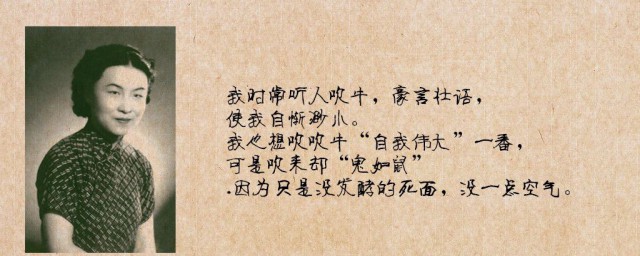 我时常听人吹牛，豪言壮语，
使我自惭渺小。
我也想吹吹牛“自我伟大”一番，
可是吹来却“鬼如鼠”
.因为只是没发酵的死面，没一点空气。